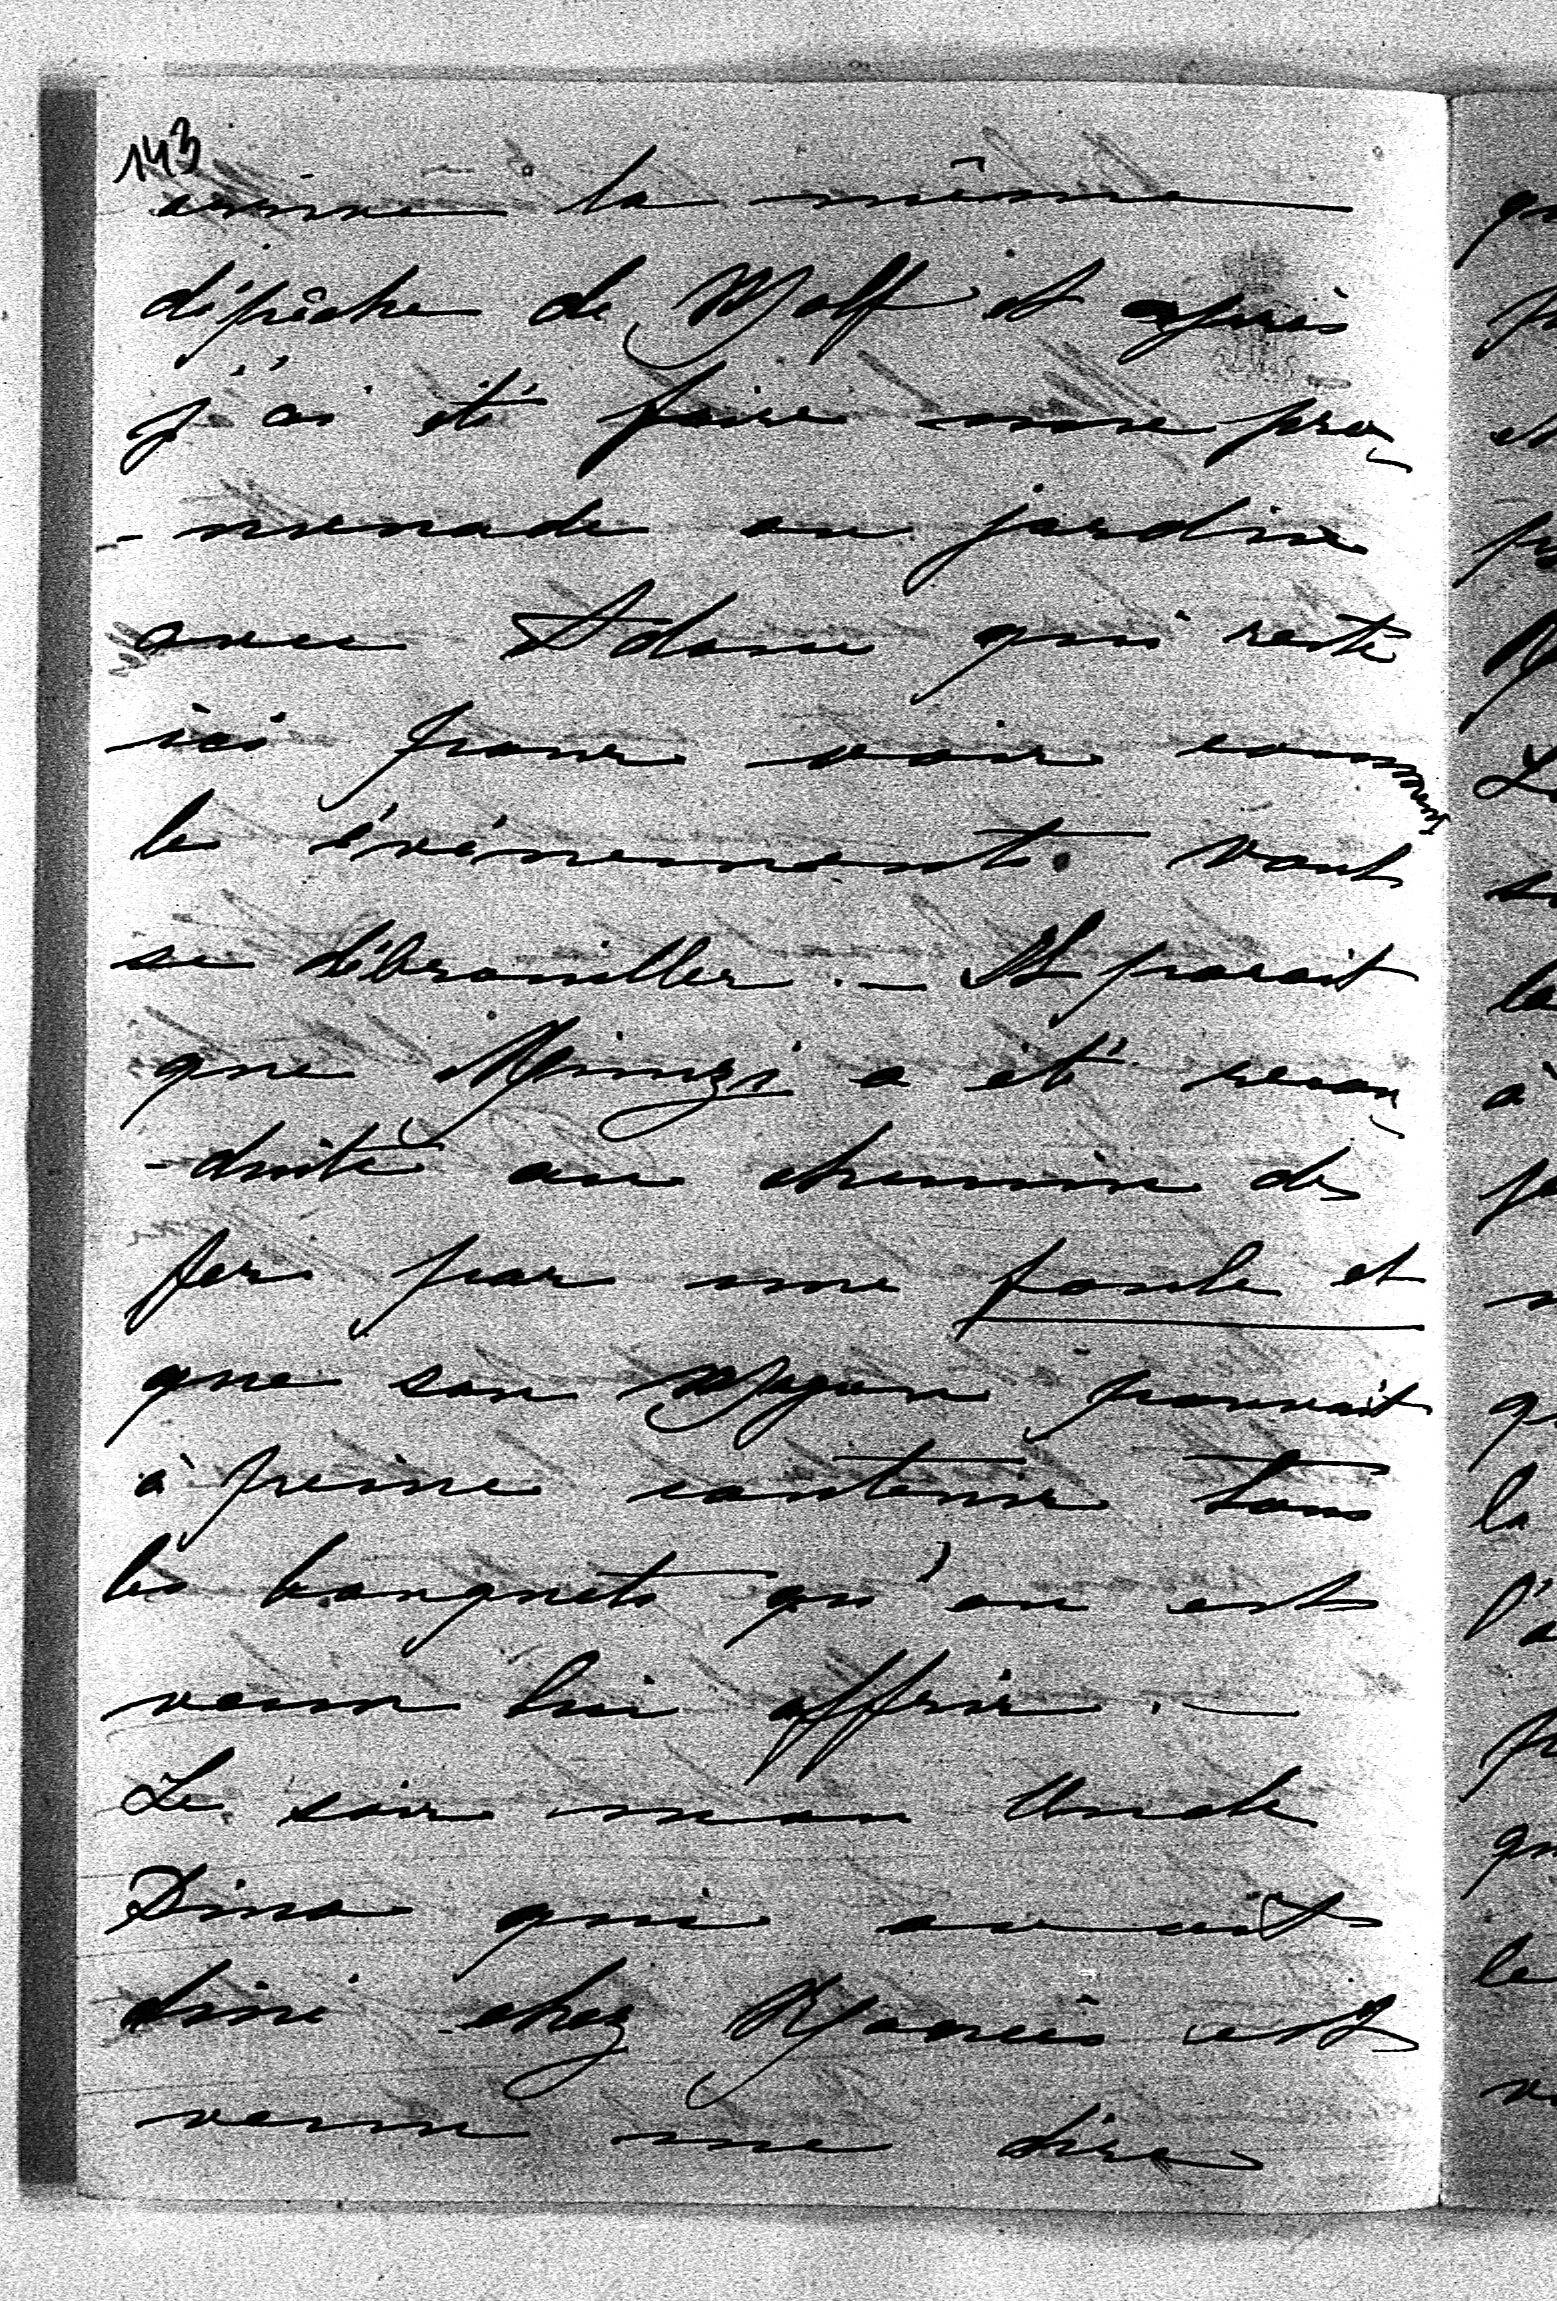 143
arrive la même
dépêche de Wolff et après
j'ai été faire une pro
-menade au jardin
avec Adam qui reste
ici pour voir comment
les événements vont
se débrouiller. — Il parait
que a été recon
-duite au chemin de
fer par une foule et
que son Wagon pouvait
à peine contenir tous
les bouquets qu'on est
venu lui offrir. —
Le soir mon Uncle
Dino qui avait
dîné chez est
venu me dire